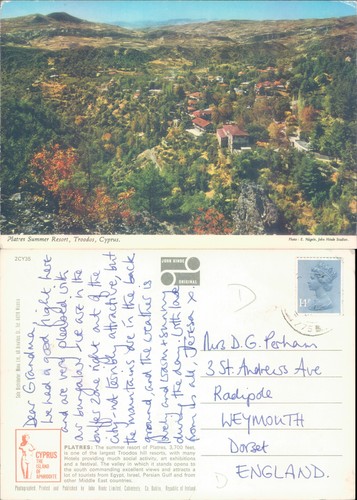 Platres Summer Resort, Troodos, Cyprus.
Photo: E. Nägele, John Hinde Studios.
2CY20
JOHN HINDE
Dear Grandma,
we had a good flight here
and are very pleased with
our bungalow. We are in the
the mountains are in the back
ground and the weather is
and warm + sunny
during the day, with love
from us all, Teresa x.
Mrs D.G. Perham
3 St. Andrews Ave
Radipole
WEYMOUTH
Dorset
ENGLAND.
D
D
CYPRUS
THE
ISLAND
OF
APHRODITE
PLATRES: The summer resort of Platres, 3,750 feet,
is one of the largest Troodos hill resorts, with many
Hotels providing much social activity, art exhibitions
and a festival. The valley in which it stands caters to
the south commanding excellent views and attracts a
lot of tourists from Egypt, Israel, Persian Gulf and from
other Middle East countries.
Photographed, Printed and Published by John Hinde Limited
Republic of Ireland